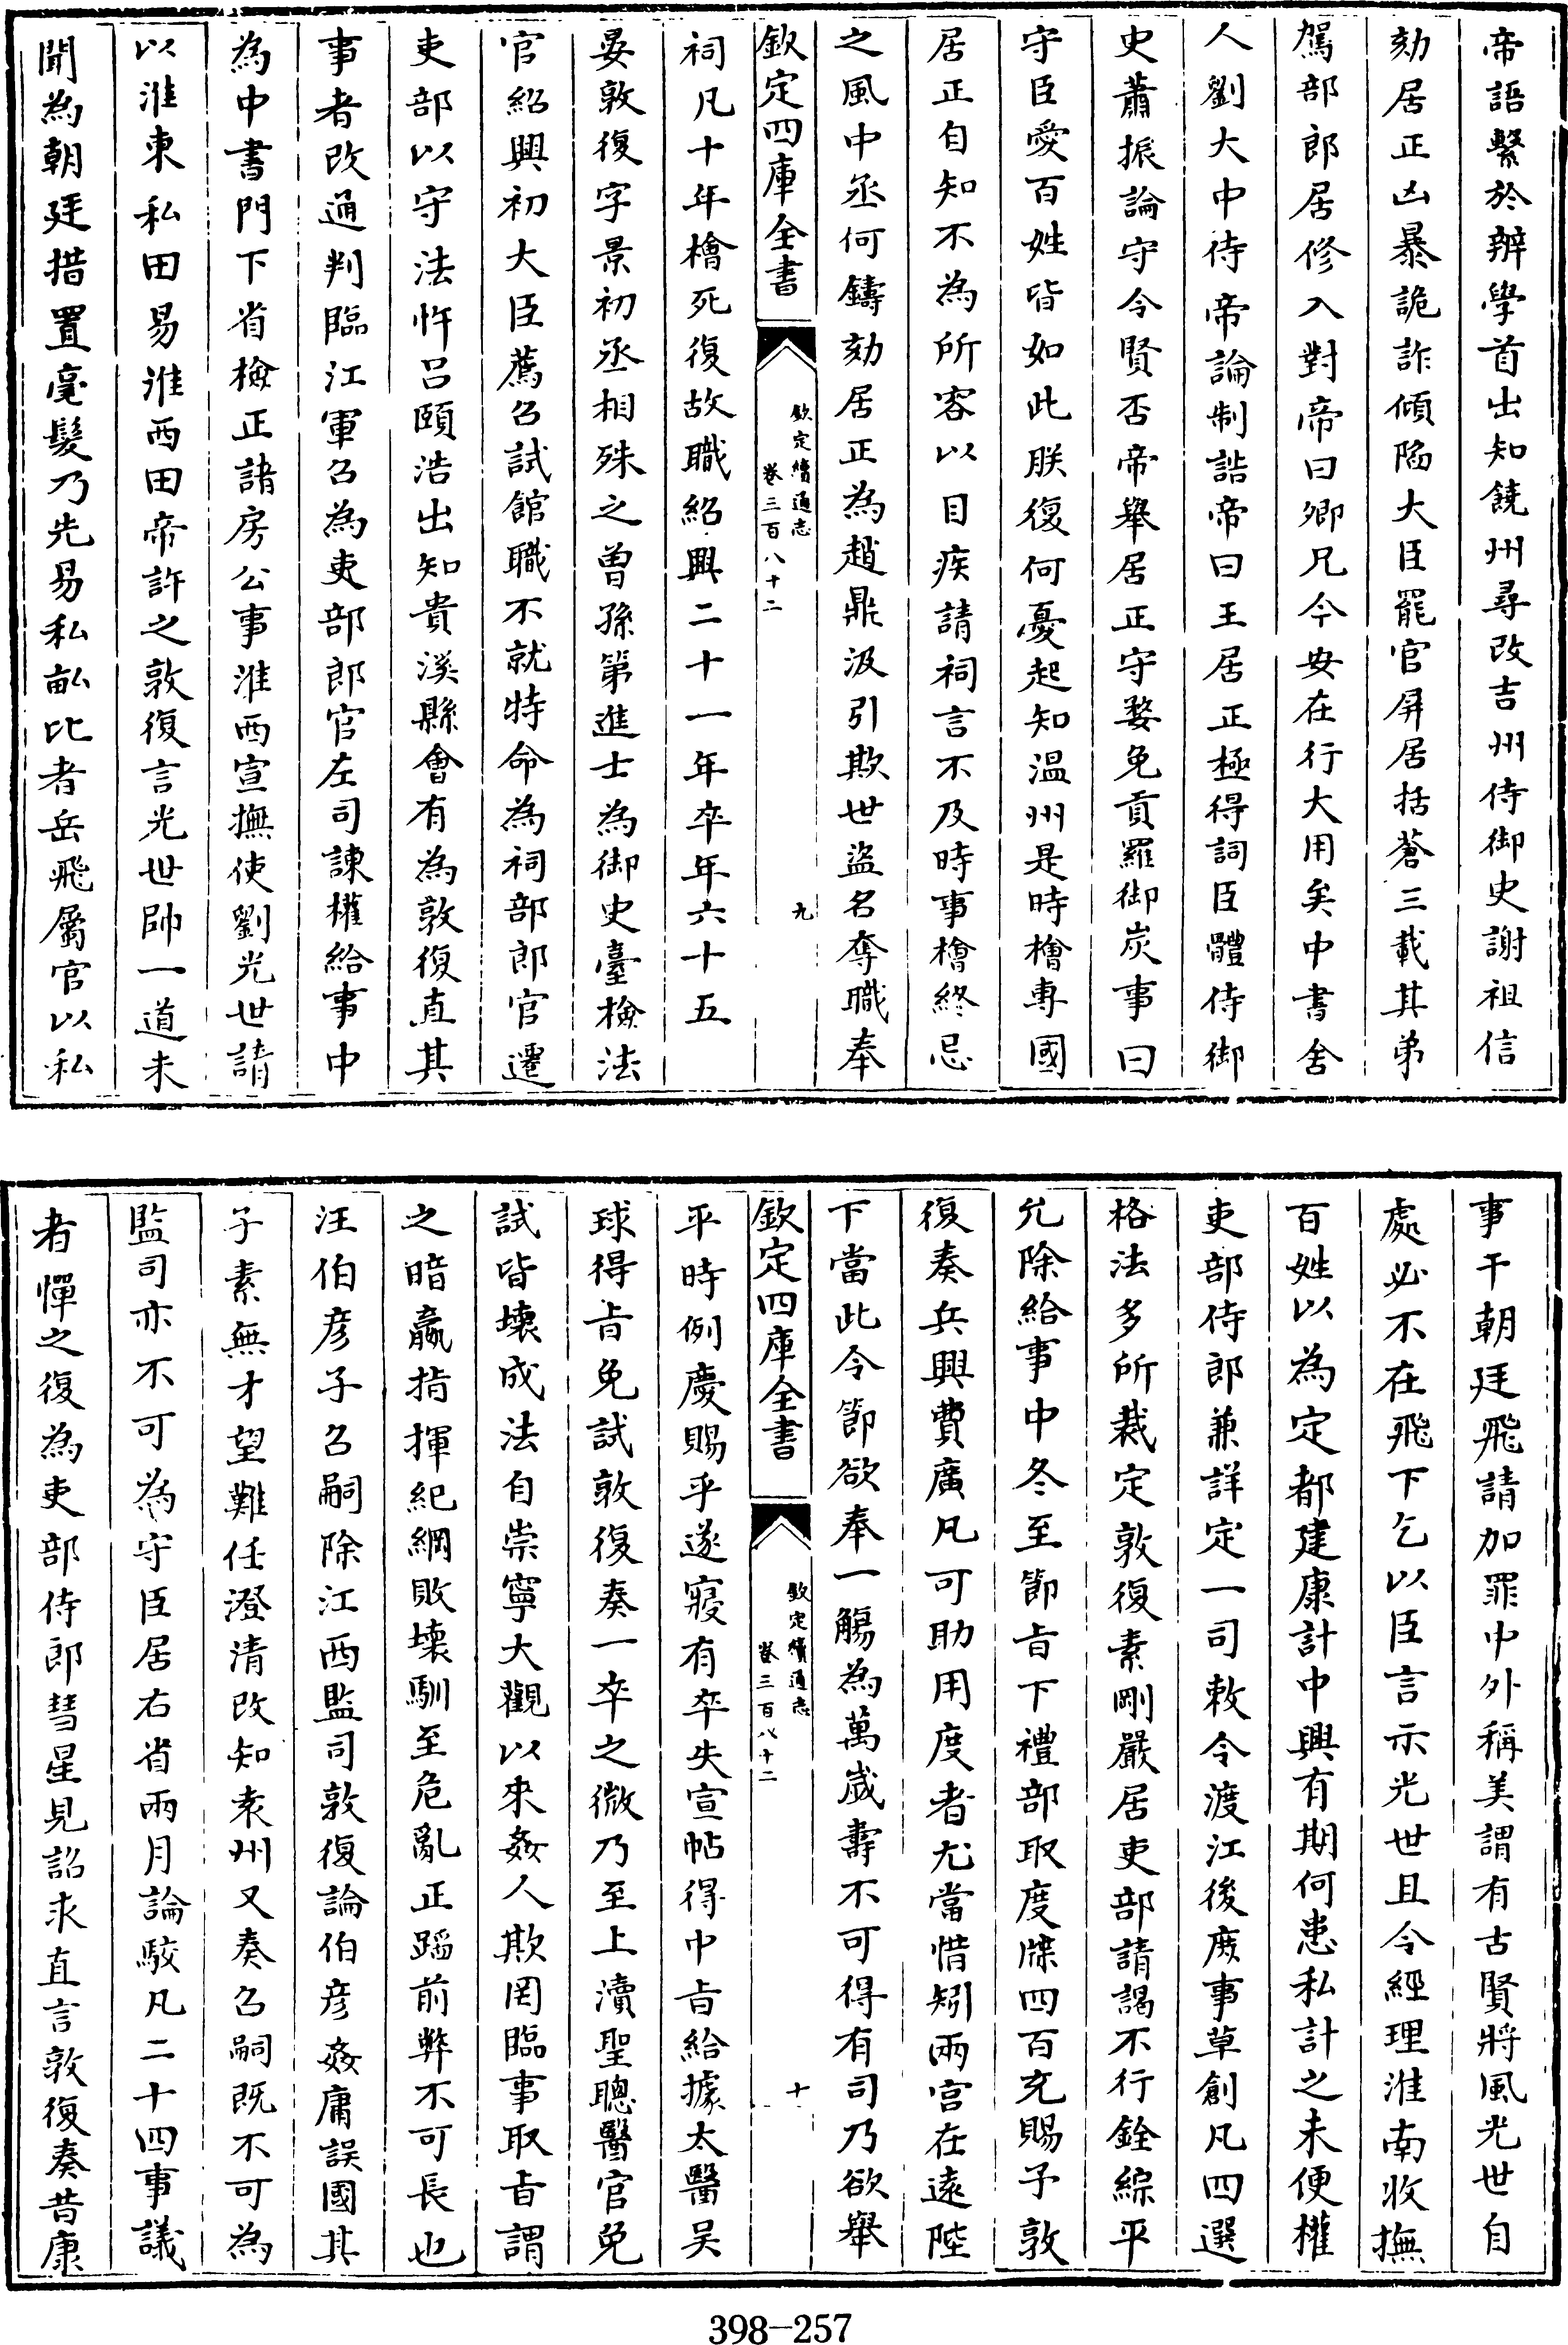 帝語繫於辨學首出知饒州尋改吉州侍御史謝祖信
劾居正凶暴詭詐傾陷大臣罷官屏居括蒼三載其弟
駕部郎居修入對帝曰卿兄今安在行大用矣中書舍
人劉大中侍帝論制誥帝曰王居正極得詞臣體侍御
史蕭振論守令賢否帝舉居正守婺免貢羅御炭事曰
守臣愛百姓皆如此朕復何憂起知温州是時檜專國
居正自知不為所容以目疾請祠言不及時事檜終忌
之風中丞何鑄劾居正為趙鼎汲引欺世盜名奪職奉
欽定四庫全書
欽定續通志
卷三百八十二
九
祠凡十年檜死復故職紹興二十一年卒年六十五
晏敦復字景初丞相殊之曾孫第進士為御史臺檢法
官紹興初大臣薦召試館職不就特命為祠部郎官遷
吏部以守法忤呂頤浩出知貴溪縣會有為敦復直其
事者改通判臨江軍召為吏部郎官左司諫權給事中
為中書門下省檢正諸房公事淮西宣撫使劉光世請
以淮東私田易淮西田帝許之敦復言光世帥一道未
聞為朝廷措置毫髮乃先易私畝比者岳飛屬官以私
事干朝廷飛請加罪中外稱美謂有古賢將風光世自
處必不在飛下乞以臣言示光世且令經理淮南收撫
百姓以為定都建康計中興有期何患私計之未便權
吏部侍郎兼詳定一司敕令渡江後庶事草創凡四選
格法多所裁定敦復素剛嚴居吏部請謁不行銓綜平
允除給事中冬至節旨下禮部取度牒四百充賜予敦
復奏兵興費廣凡可助用度者尤當惜矧兩宮在遠陛
下當此令節欲奉一觴為萬歲壽不可得有司乃欲舉
欽定四庫全書
欽定續通志
卷三百八十二
十
平時例慶賜乎遂寢有卒失宣帖得中旨給據太醫吳
球得旨免試敦復奏一卒之微乃至上瀆聖聰醫官免
試皆壞成法自崇寧大觀以來姦人欺罔臨事取旨謂
之暗贏指揮紀綱敗壞馴至危亂正蹈前弊不可長也
汪伯彥子召嗣除江西監司敦復論伯彥姦庸誤國其
子素無才望難任澄清改知袁州又奏召嗣既不可為
監司亦不可為守臣居右省兩月論駮凡二十四事議
者憚之復為吏部侍郎彗星見詔求直言敦復奏昔康
398-257